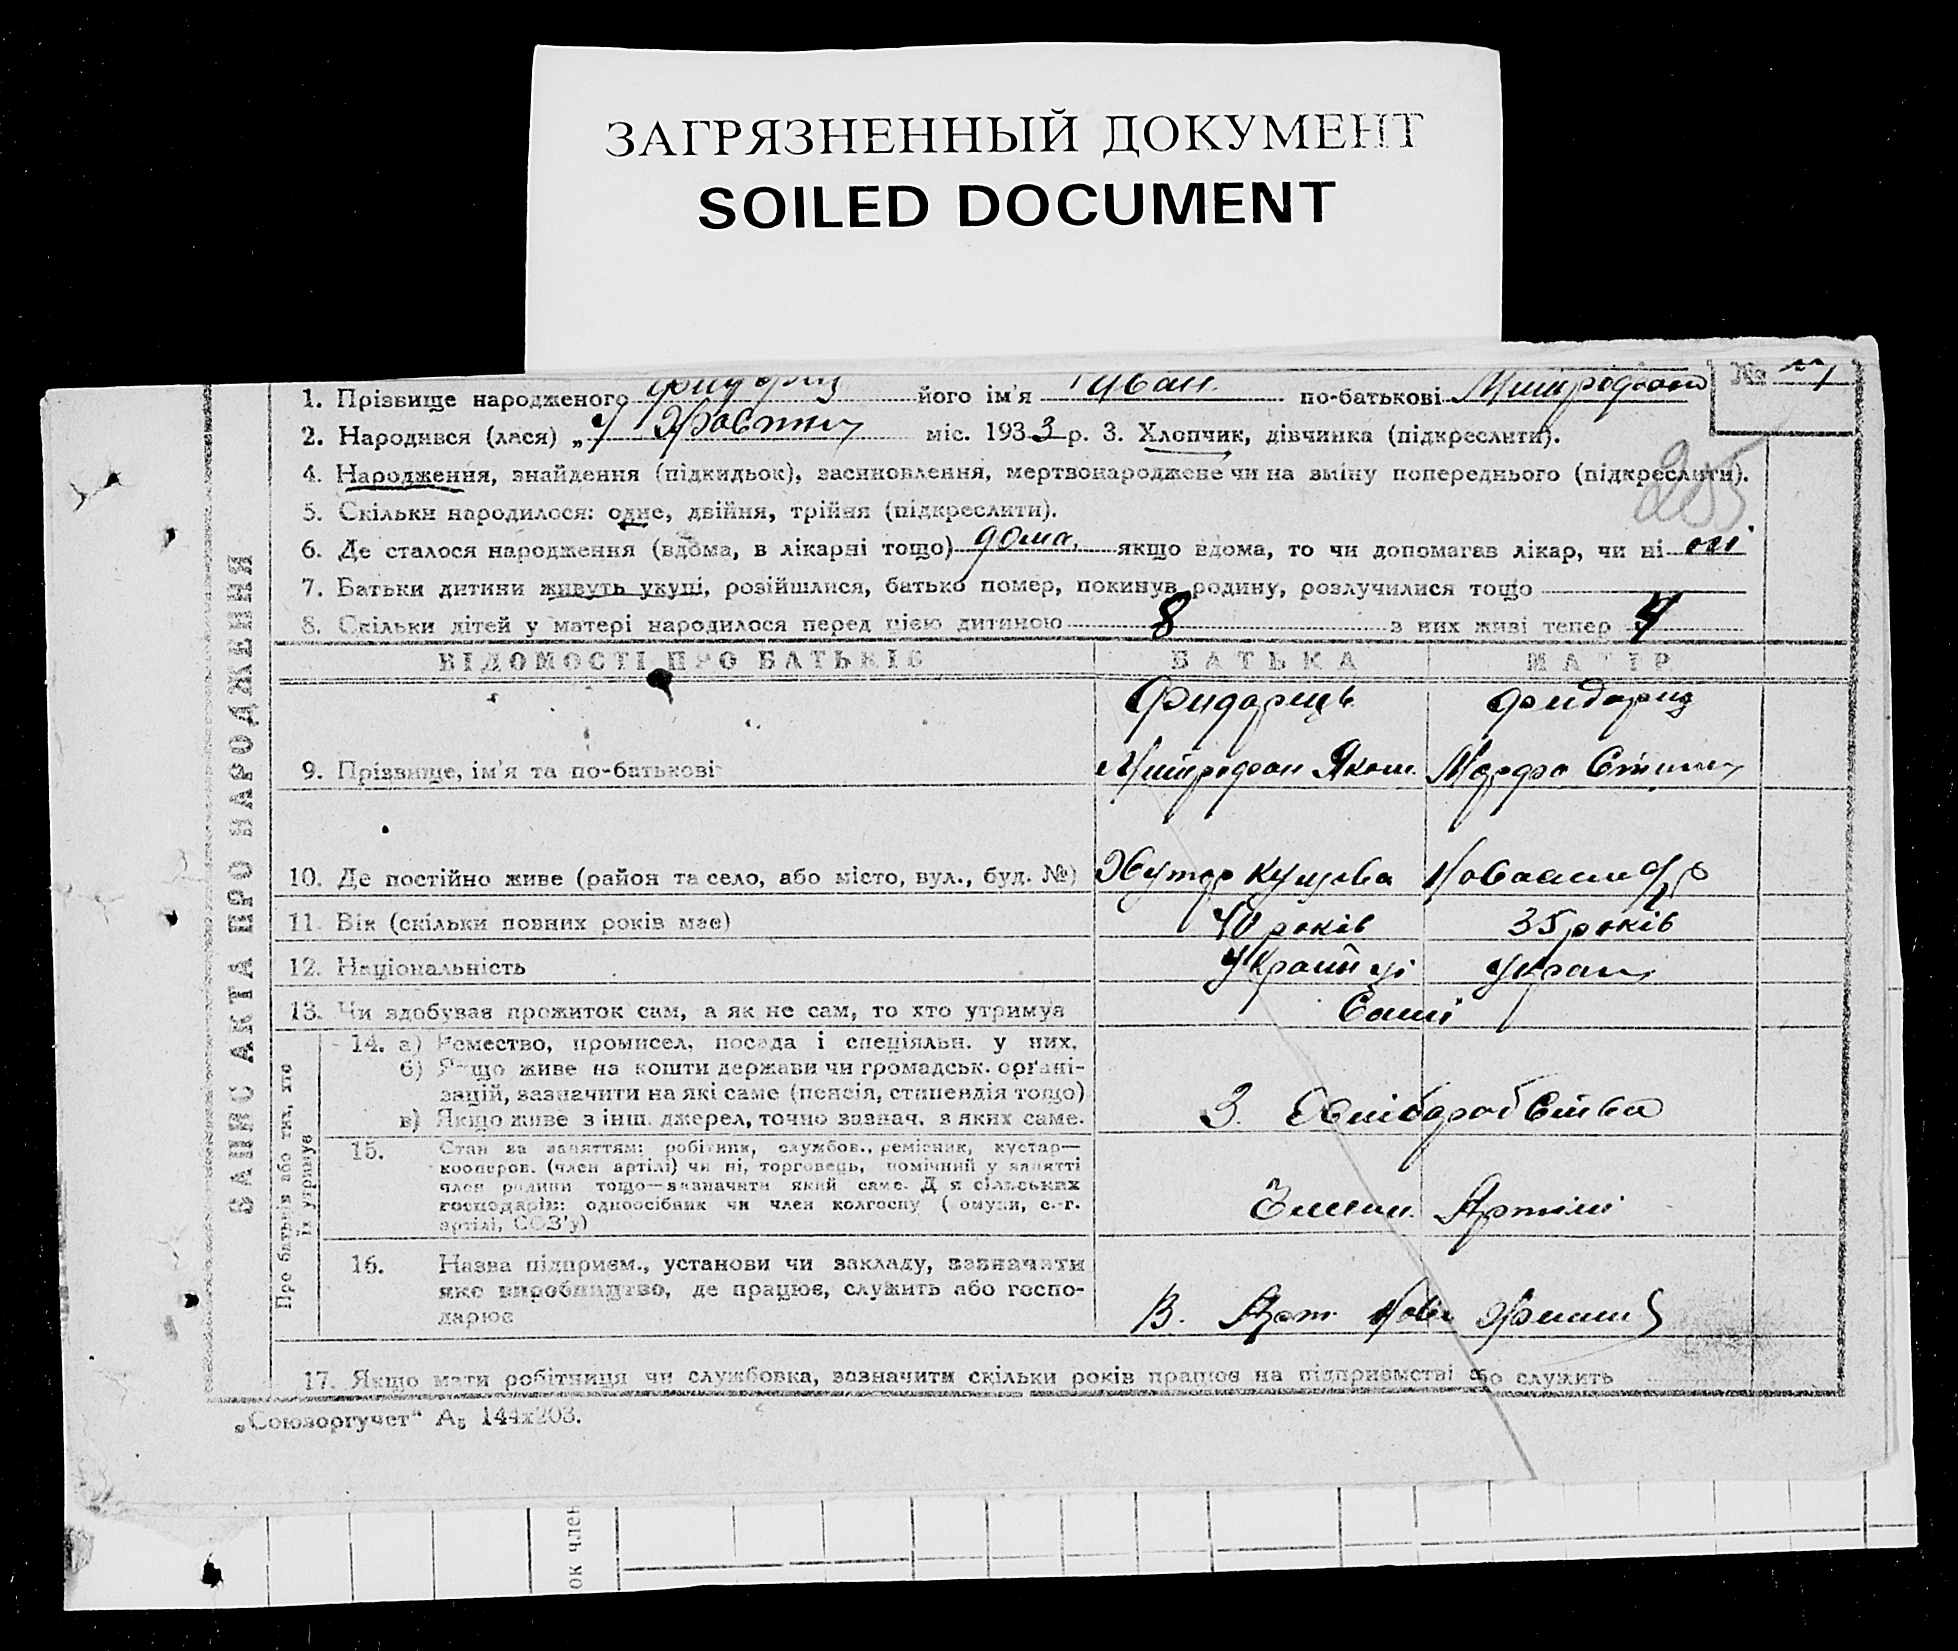 ЗАГРЯЗНЕННЫЙ ДОКУМЕНТ
SOILED DOCUMENT
№
1. Прізвище народженого його ім'я Іван по-батькові
2. Народився (лася) „ міс. 1933 р. 3. Хлопчик, дівчинка (підкреслити).
255
4. Народження, знайдення (підкидьок), засиновлення, мертвонароджене чи на зміну попереднього (підкреслити).
5. Скільки народилося: одне, двійня, трійня (підкреслити).
6. Де сталося народження (вдома, в лікарні тощо) дома, якщо вдома, то чи допомагав лікар, чи ні ні
7. Батьки дитини живуть укупі, розійшлися, батько помер, покинув родину, розлучилися тощо
8. Скільки дітей у матері народилося перед цією дитиною 8 з них живі тепер 4
ЗАПИС АКТА ПРО НАРОДЖЕННЯ
ВІДОМОСТІ ПРО БАТЬКІВ БАТЬКА МАТІР
Фидорець Фидорец
9. Прізвище, ім'я та по-батькові Митрофан Яком. Марфа
10. Де постійно живе (район та село, або місто, вул., буд. №) Хутор
11. Вік (скільки повних років має) 40 років 35 років
12. Національність
13. Чи здобував прожиток сам, а як не сам, то хто утримув Самі
Про батьків або тих, хто їх утримує
14. а) Ремество, промисел, посада і спеціяльн. у них.
б) Якщо живе на кошти держави чи громадськ. організацій, зазначити на які саме (пенсія, стипендія тощо)
в) Якщо живе з інш. джерел, точно зазнач. з яких саме. З.
15. Стан за заняттям: робітник, службов., ремісник, кустар—
кооперов. (член артілі) чи ні, торговець, помічний у занятті
член родини тощо—зазначити який саме. Для сільських
господарів: одноосібник чи член колгоспу (комуни, с.-г.
артілі, СОЗ'у) Член. Артілі
16. Назва підприєм., установи чи закладу, зазначити
яке виробництво, де працює, служить або госпо-
дарює В. Арт.
17. Якщо мати робітниця чи службовка, зазначити скільки років працює на підприємстві або служить
„Союзоргучет“ А₅ 144х203.
ок член